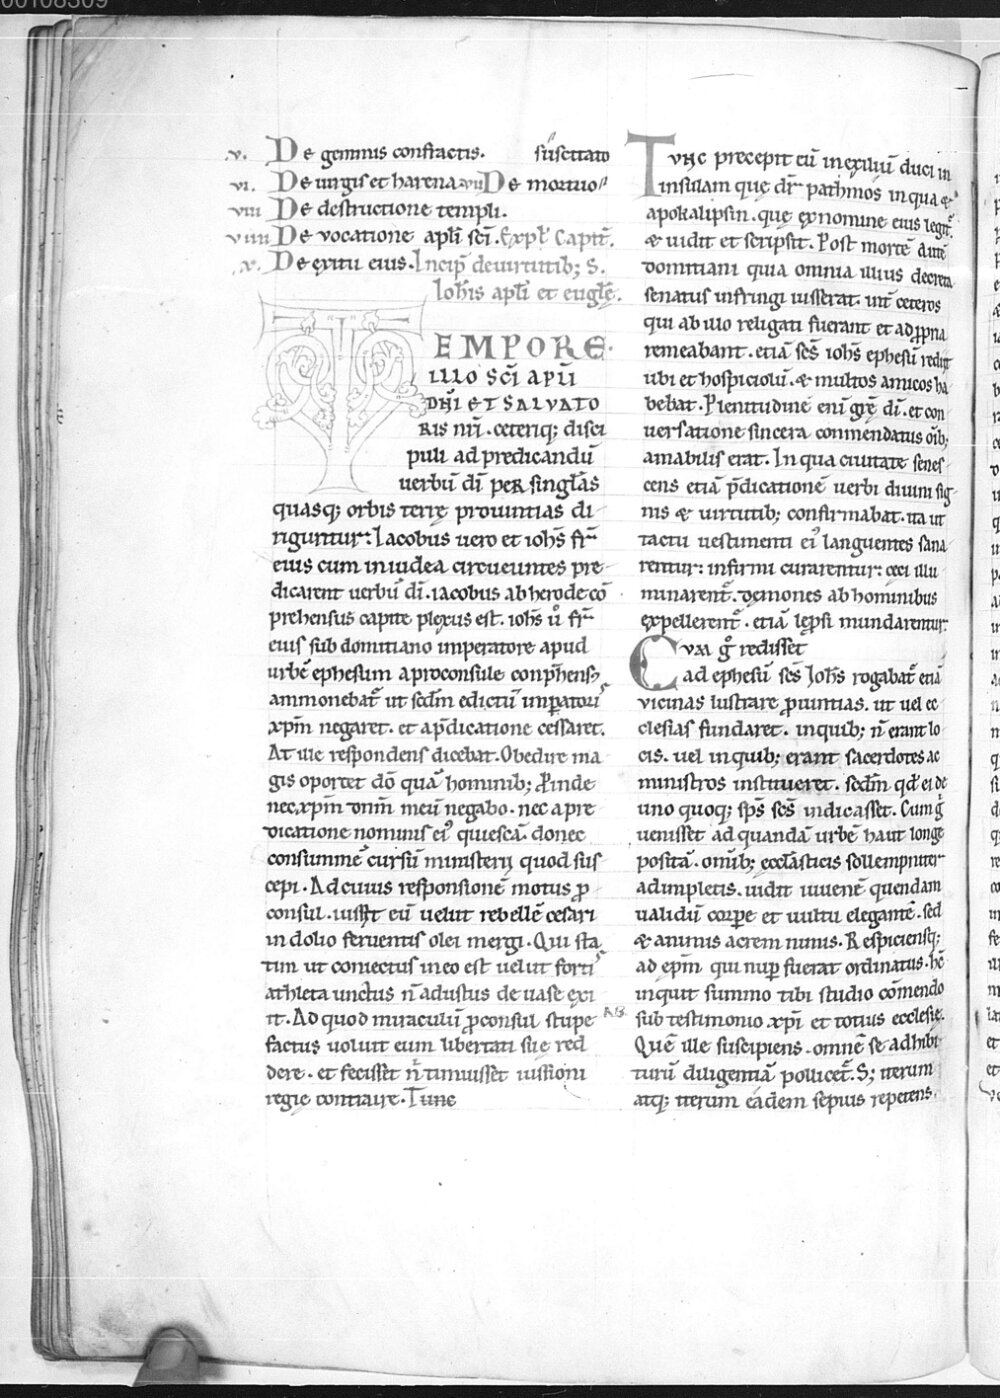 00108309
.v. De gemmis confractis. suscitato
vi. De uirgis et harena. vii De mortuo
viii De destructione templi.
viiii De vocatione apłi sc̄i. Expł Capit̄.
.x. De exitu eius. Incip̄ deuirtutib; S.
Ioh̄is apłi et eugłe.
TEMPORE
ILLO SC̄I APŁI
DN̄I ET SALVATO
RIS nr̄i. ceteriq; disci
puli ad predicandū
uerbū dī per singłas
quasq; orbis terrę prouintias di
riguntur: Iacobus uero et ioh̄s fr̄
eius cum iniudea circueuntes pre
dicarent uerbū dī. iacobus ab herode cō
prehensus capite plexus est. ioh̄s ů fr̄
eius sub domitiano imperatore apud
urbē ephesum aproconsule conp̄hens;
ammonebat̄ ut scd̄m edictū imꝑatoris
xp̄m negaret. et ap̄dicatione cessaret.
At ille respondens dicebat. Obedire ma
gis oportet dō quā hominib; Proinde
nec xp̄m dnm̄ meū negabo. nec apre
dicatione nominis ei᾽ quiescā. donec
consummē cursū ministerii quod sus
cepi. Ad cuius responsionē motus ꝓ
consul. iussit eū uelut rebellē cesari
in dolio feruentis olei mergi. Qui sta
tim ut coniectus in eo est uelut fortis
athleta unctus n̄ adustus de uase exi
it. Ad quod miraculū ꝓconsul stupe
factus uoluit eum libertati suę red
dere. et fecisset n̄ timuisset iussioni
regię contraire. Tunc
Tunc precepit eū in exiliū duci in
insulam quę dr̄ pathmos in qua &
apokalipsin. quę ex nomine eius legit̄.
& uidit et scripsit. Post mortē autē
domitiani quia omnia illius decreta
senatus infringi iusserat. int̄ ceteros
qui ab illo religati fuerant et ad ꝓpria
remeabant. etiā sc̄s ioh̄s ephesū rediit
ubi et hospiciolū. & multos amicos ha
bebat. Plenitudine enī grę̄ dī. et con
uersatione sincera commendatus oīb;
amabilis erat. In qua ciuitate senes
cens etiā p̄dicationē uerbi diuini sig
nis & uirtutib; confirmabat. ita ut
tactu uestimenti ei᾽ languentes sana
rentur: infirmi curarentur: ceci illu
minarent̄. demones ab hominibus
expellerent̄. etiā leprosi mundarentur.
Cum g̊ redisset
ad ephesū sc̄s Ioh̄s rogabat̄ etiā
vicinas lustrare ꝓuintias. ut uel ec
clesias fundaret. in quib; n̄ erant lo
cis. uel in quib; erant sacerdotes ac
ministros institueret. scd̄m qd̄ ei de
uno quoq; sps̄ sc̄s indicasset. Cum g̊
uenisset ad quandā urbē haut longe
positā. omīb; eccłasticis sollempniter
adimpletis. uidit iuuenē quendam
ualidū corpe et uultu elegantē. sed
& animis acrem nimis. Respiciensq;
ad ep̄m qui nuꝑ fuerat ordinatus. hc̄
inquit summo tibi studio cōmendo
sub testimonio xp̄i et totius ecclesię.
Quē ille suscipiens. omnē se adhibi
turū diligentiā pollicet̄. S; iterum
atq; iterum eadem sepius repetens